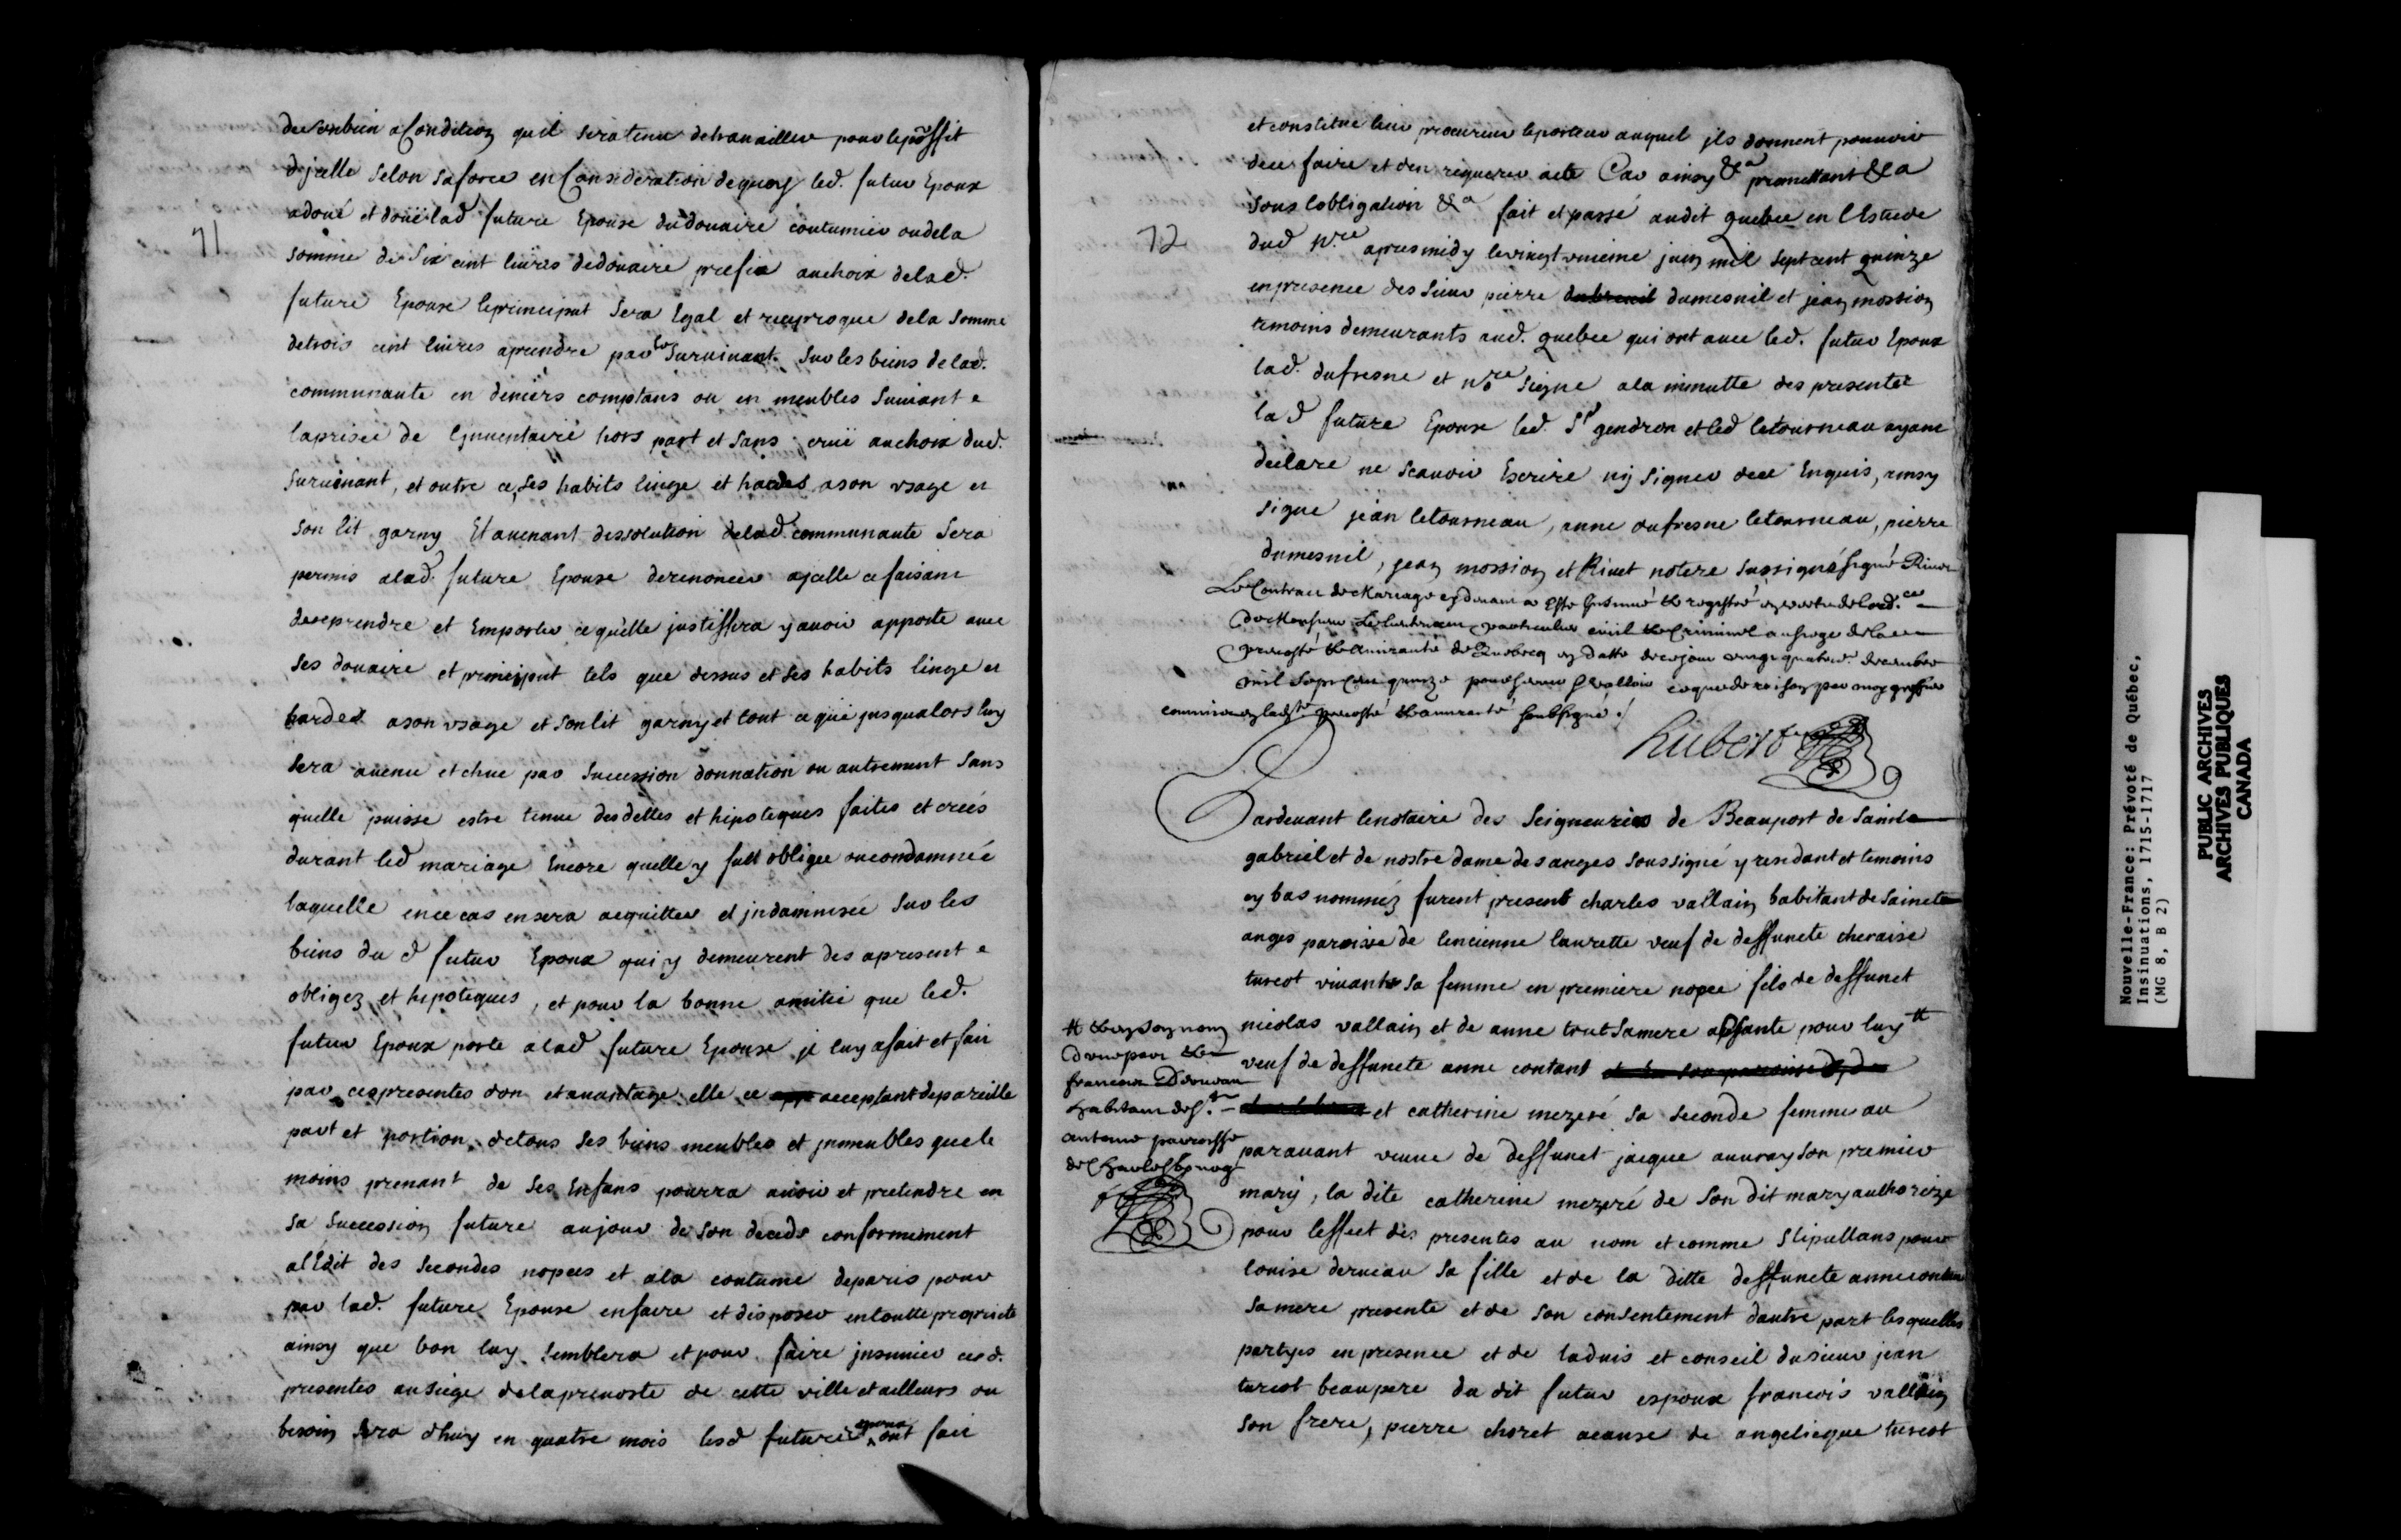 71
de son bien a Condition quil sera tenu de travailler pour le proffit
djcelle selon sa force en Consideration de quoy led. futur Epoux
a doué et douë lad future Epouse du douaire coutumier ou de la
somme de Six cent livres de douaire prefix au choix de lad.
future Epouse le preciput sera Egal et reciproque de la somme
de trois cent livres a prendre par le survivant sur les biens de lad.
communaute en deniers comptans ou en meubles suivant
la prisée de Lynventaire hors part et sans cruë au choix dud.
survivant, et outre ce, ses habits linge et hardes a son usage et
son lit garny Et avenant dissolution de lad. communaute sera
permis a lad. future Epouse de renoncer a jcelle ce faisant
de reprendre et Emporter ce quelle justiffira y avoir apporte avec
ses douaire et preciput tels que dessus et ses habits linge et
hardes a son usage et son lit garny et tout ce qui jusqualors luy
sera avenu et echue par succession donnation ou autrement sans
quelle puisse estre tenue des dettes et hipoteques faites et creés
durant led mariage Encore quelle y fust obligee ou condamnée
laquelle en ce cas en sera acquittee et jndamnisée sur les
biens du d futur Epoux qui y demeurent des apresent
obligez et hipoteques, et pour la bonne amitié que led.
futur Epoux porte a lad future Epouse jl luy a fait et fait
par ces presentes don et avantage elle ce acceptant de pareille
part et portion de tous ses biens meubles et jmmeubles que le
moins prenant de ses Enfans pourra avoir et pretendre en
sa succession future au jour de son deceds conformement
a l'Edit des secondes nopces et a la coutume de paris pour
par lad. future Epouse en faire et disposer en toutte proprieté
ainsy que bon luy semblera et pour faire jnsinuer ces d.
presentes au siege de la prevoste de cette ville et ailleurs ou
besoin sera dhuy en quatre mois lesd futurs epoux ont fait
72
et constitué leur procureur le porteur auquel jls donnent pouvoir
de ce faire et den requerir acte Car ainsy &a promettant &a
sous lobligation &a fait et passé audit quebec en l'Estude
dud Nre apres midy le vingt unieme juin mil sept cent quinze
en presence des sieur pierre dubreuil dumesnil et jean mossion
temoins demeurants aud. quebec qui ont avec led. futur Epoux
lad. dufresne et Nore signe a la minutte des presentes
la d future Epouse led. Sr gendron et led letourneau ayant
declare ne scavoir Escrire nij signer de ce Enquis, ainsy
signe jean letourneau, anne dufresne letourneau, pierre
dumesnil, jean mossion et Rivet notere sussigné signé Rivet
Le Contract de Mariage cy devant a Esté Insinué & registré en vertu de lord.ce
de Monsieur Le Lieutenant particulier civil & Criminel au siege de la
prevosté & amirauté de Quebecq en datte de ce jour vingt quatre decembre
mil sept Cent quinze pour servir & valloir ce que de raison par moy greffier
commis en ladte prevosté & amirauté soubsigné ./
hubert
Pardevant le notaire des Seigneuries de Beauport de Sainte
gabriel et de nostre dame des anges soussigné y residant et temoins
cy bas nommez furent present charles vallain habitant de Saincte
anges paroisse de lencienne laurette veuf de deffuncte
turcot vivante sa femme en premiere nopce fils de deffunct
nicolas vallain et de anne trut sa mere absante pour luy #
# & en son nom
dune part &
francois Derveau
habitant de St
antoine parroisse
de Charlesbourg
veuf de deffuncte anne contant
et catherine mezeré sa seconde femme au
paravant veuve de deffunct jacque auvray son premier
mary, la dite catherine mezeré de son dit mary authorize
pour leffect des presentes au nom et comme stipullans pour
louise derveau sa fille et de la ditte deffuncte anne contant
sa mere presente et de son consentement dautre part lesquelles
partyes en presence et de ladvis et conseil du sieur jean
turcot beaupere du dit futur espoux francois vallain
son frere, pierre choret acause de angelicque turcot
Nouvelle-France: Prévoté de Québec,
Insinuations, 1715-1717
(MG 8, B 2)
PUBLIC ARCHIVES
ARCHIVES PUBLIQUES
CANADA